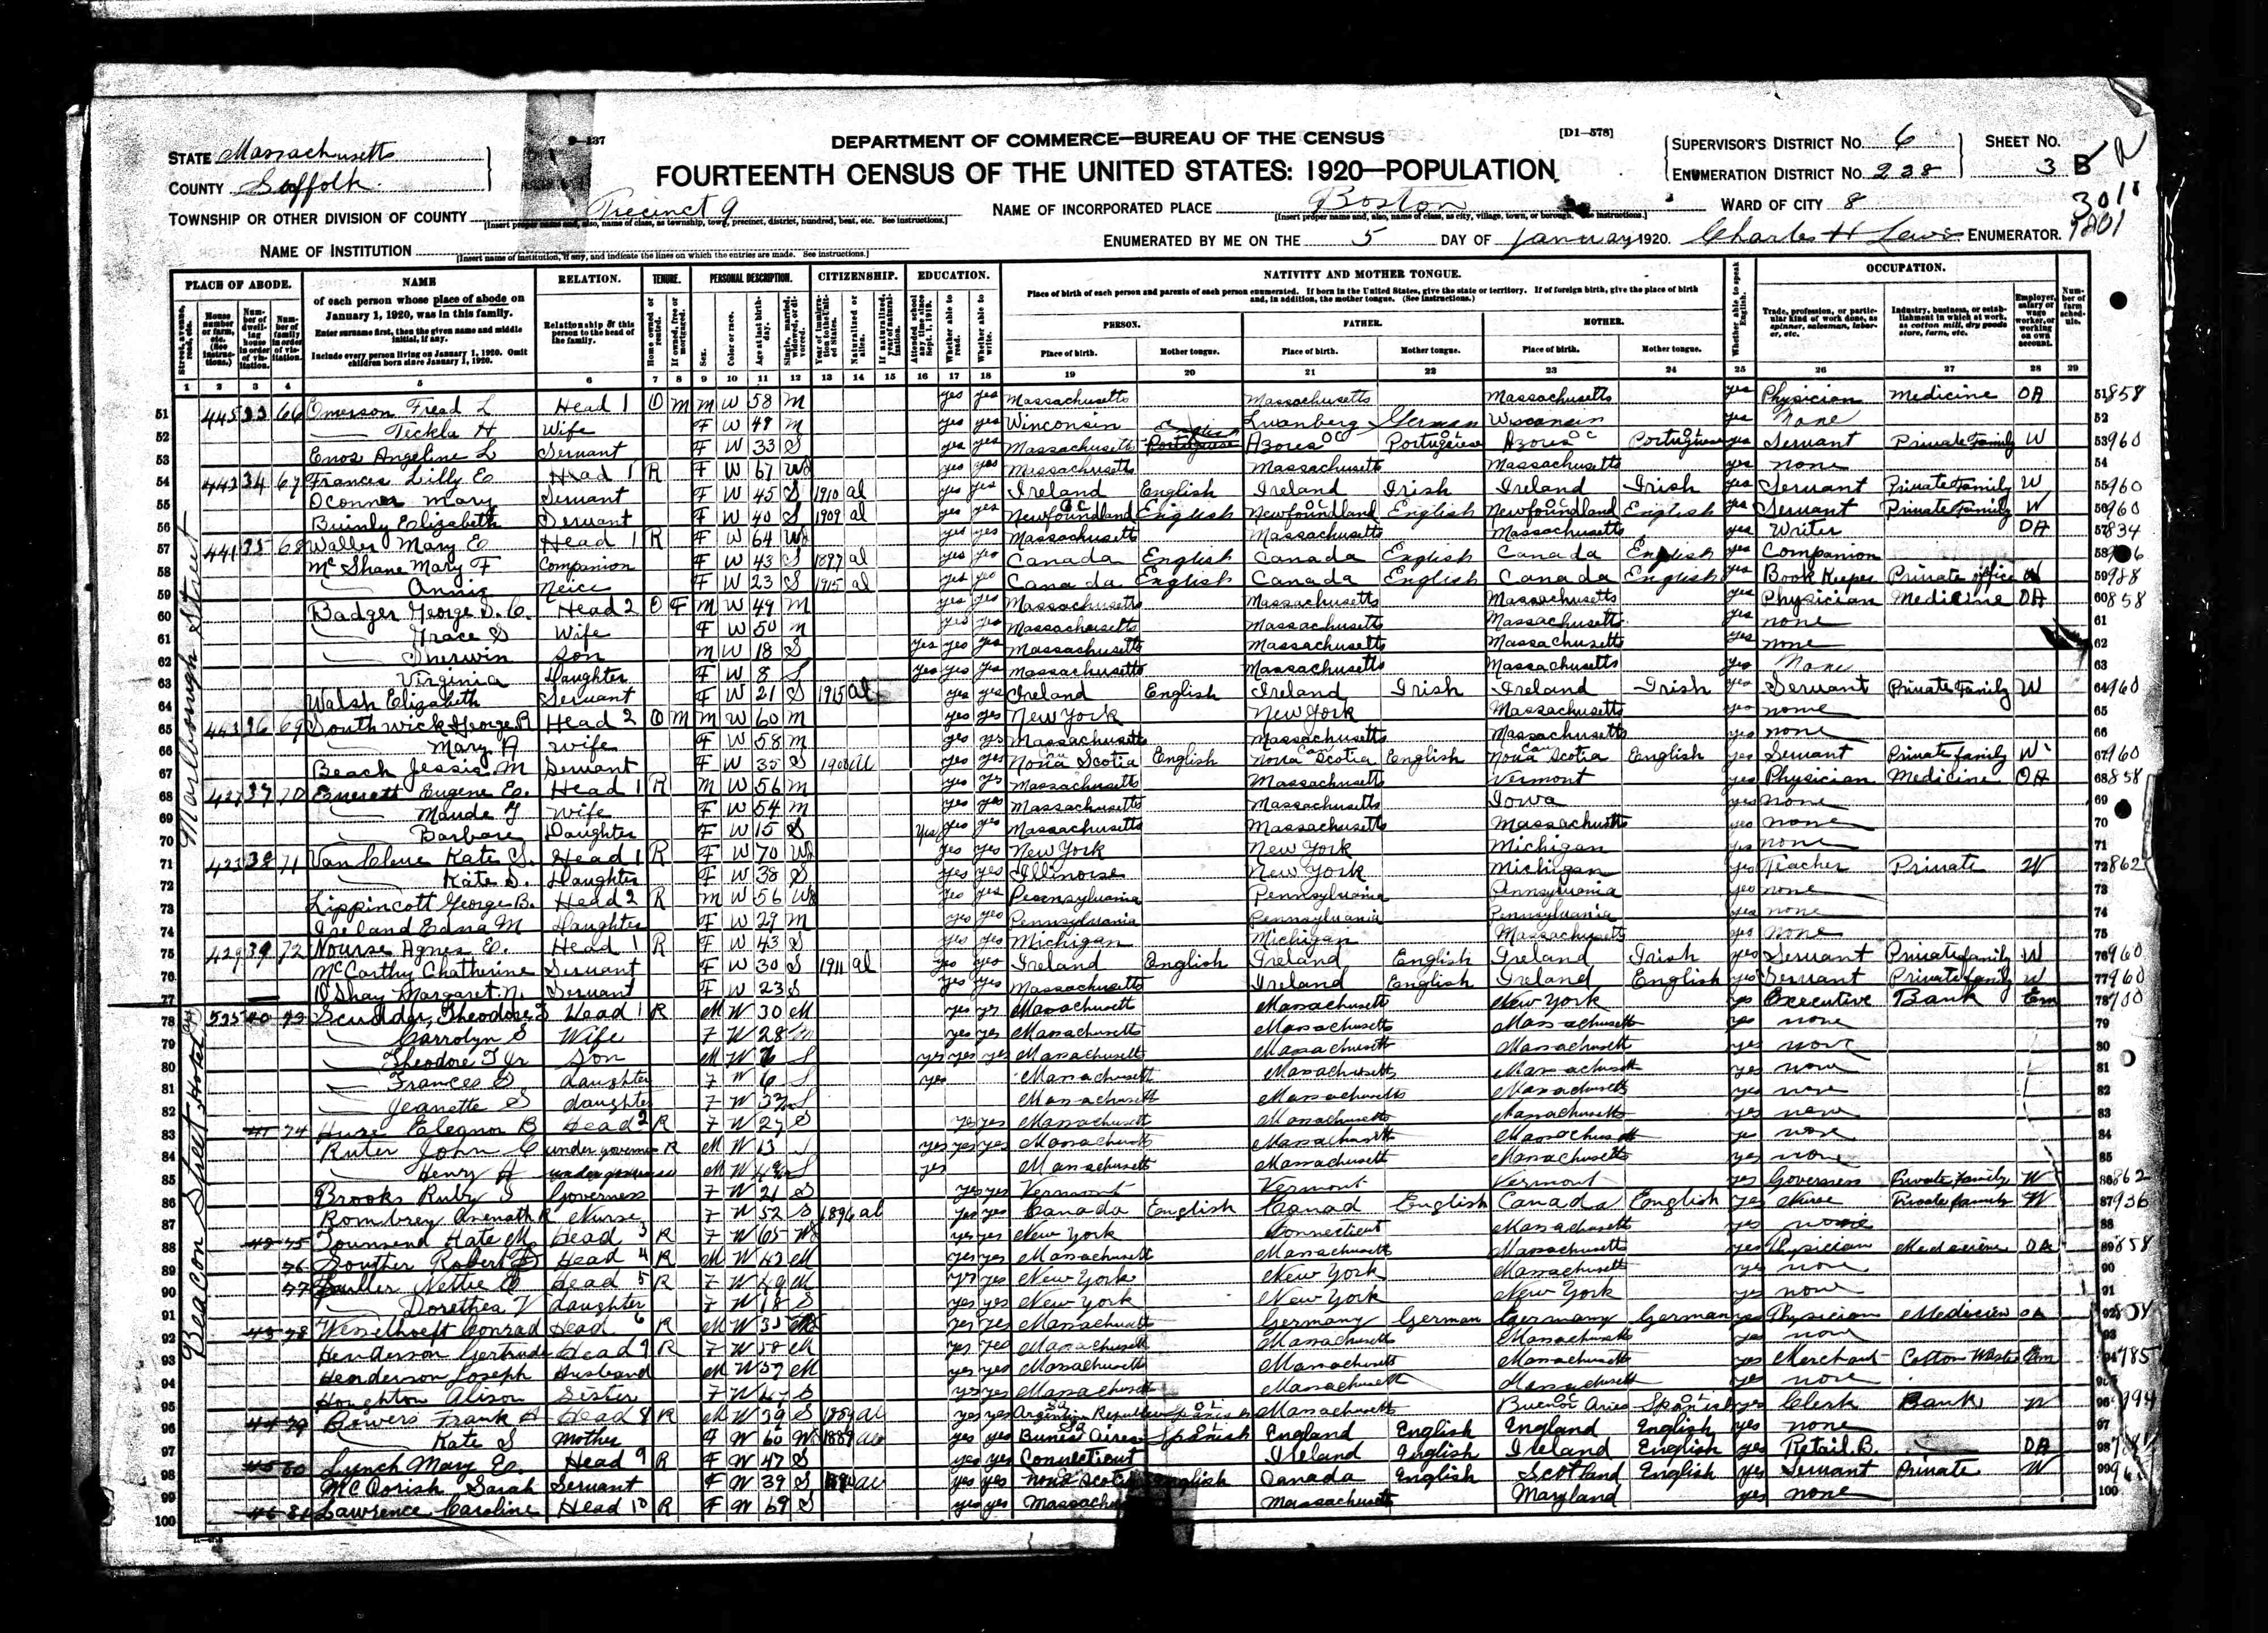 9-137
DEPARTMENT OF COMMERCE—BUREAU OF THE CENSUS
[D1-578]
FOURTEENTH CENSUS OF THE UNITED STATES: 1920—POPULATION
STATE Massachusetts
COUNTY Suffolk
SUPERVISOR'S DISTRICT No. 6
ENUMERATION DISTRICT No. 238
SHEET No. 3 B
TOWNSHIP OR OTHER DIVISION OF COUNTY Precinct 9
NAME OF INCORPORATED PLACE Boston
WARD OF CITY 8
NAME OF INSTITUTION
ENUMERATED BY ME ON THE 5 DAY OF January 1920. Charles H ENUMERATOR.
PLACE OF ABODE. NAME RELATION. TENURE. PERSONAL DESCRIPTION. CITIZENSHIP. EDUCATION. NATIVITY AND MOTHER TONGUE. OCCUPATION.
of each person whose place of abode on January 1, 1920, was in this family.
Enter surname first, then the given name and middle initial, if any.
Include every person living on January 1, 1920. Omit children born since January 1, 1920.
Relationship of this person to the head of the family.
Place of birth of each person and parents of each person enumerated. If born in the United States, give the state or territory. If of foreign birth, give the place of birth and, in addition, the mother tongue. (See instructions.)
PERSON. FATHER. MOTHER.
Place of birth. Mother tongue. Place of birth. Mother tongue. Place of birth. Mother tongue.
1 2 3 4 5 6 7 8 9 10 11 12 13 14 15 16 17 18 19 20 21 22 23 24 25 26 27 28 29
Marlborough Street
51 445 33 66 Emerson Fread L Head 1 O M M W 58 M yes yes Massachusetts Massachusetts Massachusetts yes Physician Medicine OA 858
52 Teckla H Wife F W 49 M yes yes Winconsin German Wisconsin yes None
53 Enos Angeline L Servant F W 33 S yes yes Massachusetts Azores Portuguese Azores Portuguese yes Servant Private Family W 960
54 443 34 67 Frances Lilly E Head 1 R F W 67 Wd yes yes Massachusetts Massachusetts Massachusetts yes none
55 OConner Mary Servant F W 45 S 1910 al yes yes Ireland English Ireland Irish Ireland Irish yes Servant Private Family W 960
56 Elizabeth Servant F W 40 S 1909 al yes yes Newfoundland English Newfoundland English Newfoundland English yes Servant Private Family W 960
57 441 35 68 Waller Mary E Head 1 R F W 64 Wd yes yes Massachusetts Massachusetts Massachusetts yes Writer OA 834
58 McShane Mary F Companion F W 43 S 1897 al yes yes Canada English Canada English Canada English yes Companion
59 Annie Neice F W 23 S 1915 al yes yes Canada English Canada English Canada English yes Book Keeper Private office W 988
60 Badger George S. C. Head 2 O F M W 49 M yes yes Massachusetts Massachusetts Massachusetts yes Physician Medicine OA 858
61 Grace S Wife F W 50 M yes yes Massachusetts Massachusetts Massachusetts yes none
62 Sherwin Son M W 18 S yes yes yes Massachusetts Massachusetts Massachusetts yes none
63 Virginia Daughter F W 8 S yes yes yes Massachusetts Massachusetts Massachusetts yes None
64 Walsh Elizabeth Servant F W 21 S 1915 al yes yes Ireland English Ireland Irish Ireland Irish yes Servant Private Family W 960
65 443 36 69 Southwick George R Head 2 O M M W 60 M yes yes New York New York Massachusetts yes none
66 Mary A Wife F W 58 M yes yes Massachusetts Massachusetts Massachusetts yes none
67 Beach Jessie M Servant F W 35 S 1908 al yes yes Nova Scotia English Nova Scotia English Nova Scotia English yes Servant Private family W 960
68 427 37 70 Everett Eugene E. Head 1 R M W 56 M yes yes Massachusetts Massachusetts Vermont yes Physician Medicine OA 858
69 Maude G Wife F W 54 M yes yes Massachusetts Massachusetts Iowa yes none
70 Barbare Daughter F W 15 S yes yes yes Massachusetts Massachusetts Massachusetts yes none
71 423 38 71 Van Cleve Kate S. Head 1 R F W 70 Wd yes yes New York New York Michigan yes none
72 Kate S. Daughter F W 38 S yes yes Illinoise New York Michigan yes Teacher Private W 862
73 Lippincott George B. Head 2 R M W 56 Wd yes yes Pennsylvania Pennsylvania Pennsylvania yes none
74 Ireland Edna M Daughter F W 29 M yes yes Pennsylvania Pennsylvania Pennsylvania yes none
75 429 39 72 Nourse Agnes E. Head 1 R F W 43 S yes yes Michigan Michigan Massachusetts yes None
76 McCarthy Chatherine Servant F W 30 S 1911 al yes yes Ireland English Ireland English Ireland Irish yes Servant Private family W 960
77 OShay Margaret N. Servant F W 23 S yes yes Massachusetts Ireland English Ireland English yes Servant Private family W 960
Beacon Street Hotel
78 535 40 73 Scudder, Theodore T Head 1 R M W 30 M yes yes Massachusetts Massachusetts New York yes Executive Bank Em 700
79 Carrolyn S Wife F W 28 M yes yes Massachusetts Massachusetts Massachusetts yes none
80 Theodore T Jr Son M W S yes yes yes Massachusetts Massachusetts Massachusetts yes none
81 Frances S daughter F W 6 S yes Massachusetts Massachusetts Massachusetts yes none
82 Jeanette S daughter F W S Massachusetts Massachusetts Massachusetts yes none
83 41 74 Eleanor B Head 2 R F W 27 S yes yes Massachusetts Massachusetts Massachusetts yes none
84 Ruter John C under governess R M W 13 S yes yes yes Massachusetts Massachusetts Massachusetts yes none
85 Henry H M W S yes Massachusetts Massachusetts Massachusetts yes none
86 Brooks Ruby I Governess F W 21 S yes yes Vermont Vermont Vermont yes Governess Private family W 862
87 Nurse F W 52 S 1896 al yes yes Canada English Canad English Canada English yes Nurse Private family W 936
88 42 75 Townsend Kate M. Head 3 R F W 65 Wd yes yes New York Connecticut Massachusetts yes none
89 76 Souther Robert Head 4 R M W 43 M yes yes Massachusetts Massachusetts Massachusetts yes Physician Medicine OA 858
90 77 Fuller Nettie Head 5 R F W 49 M yes yes New York New York Massachusetts yes none
91 Dorethea V daughter F W 18 S yes yes New York New York New York yes none
92 43 78 Wesselhoeft Conrad Head 6 R M W 35 yes yes Massachusetts Germany German Germany German yes Physician Medicine OA
93 Henderson Gertrude Head 7 R F W 58 M yes yes Massachusetts Massachusetts Massachusetts yes none
94 Henderson Joseph Husband M W 59 M yes yes Massachusetts Massachusetts Massachusetts yes Merchant Cotton Waste Em 785
95 Houghton Alison Sister F W 47 S yes yes Massachusetts Massachusetts Massachusetts yes none
96 44 79 Bowers Frank A Head 8 R M W 39 S 1889 al yes yes Argentina Republic Spanish Massachusetts Buenos Aries Spanish yes Clerk Bank W 994
97 Kate S Mother F W 60 Wd 1889 al yes yes Bunese Aires Spanish England English England English yes none
98 45 80 Lynch Mary E. Head 9 R F W 47 S yes yes Connecticut Ireland English Ireland English yes Retail B. OA
99 McCorish Sarah Servant F W 39 S al yes yes Nova Scotia English Canada English Scotland English yes Servant Private W
100 46 81 Lawrence Caroline Head 10 R F W 69 S yes yes Massachu Massachusetts Maryland yes none